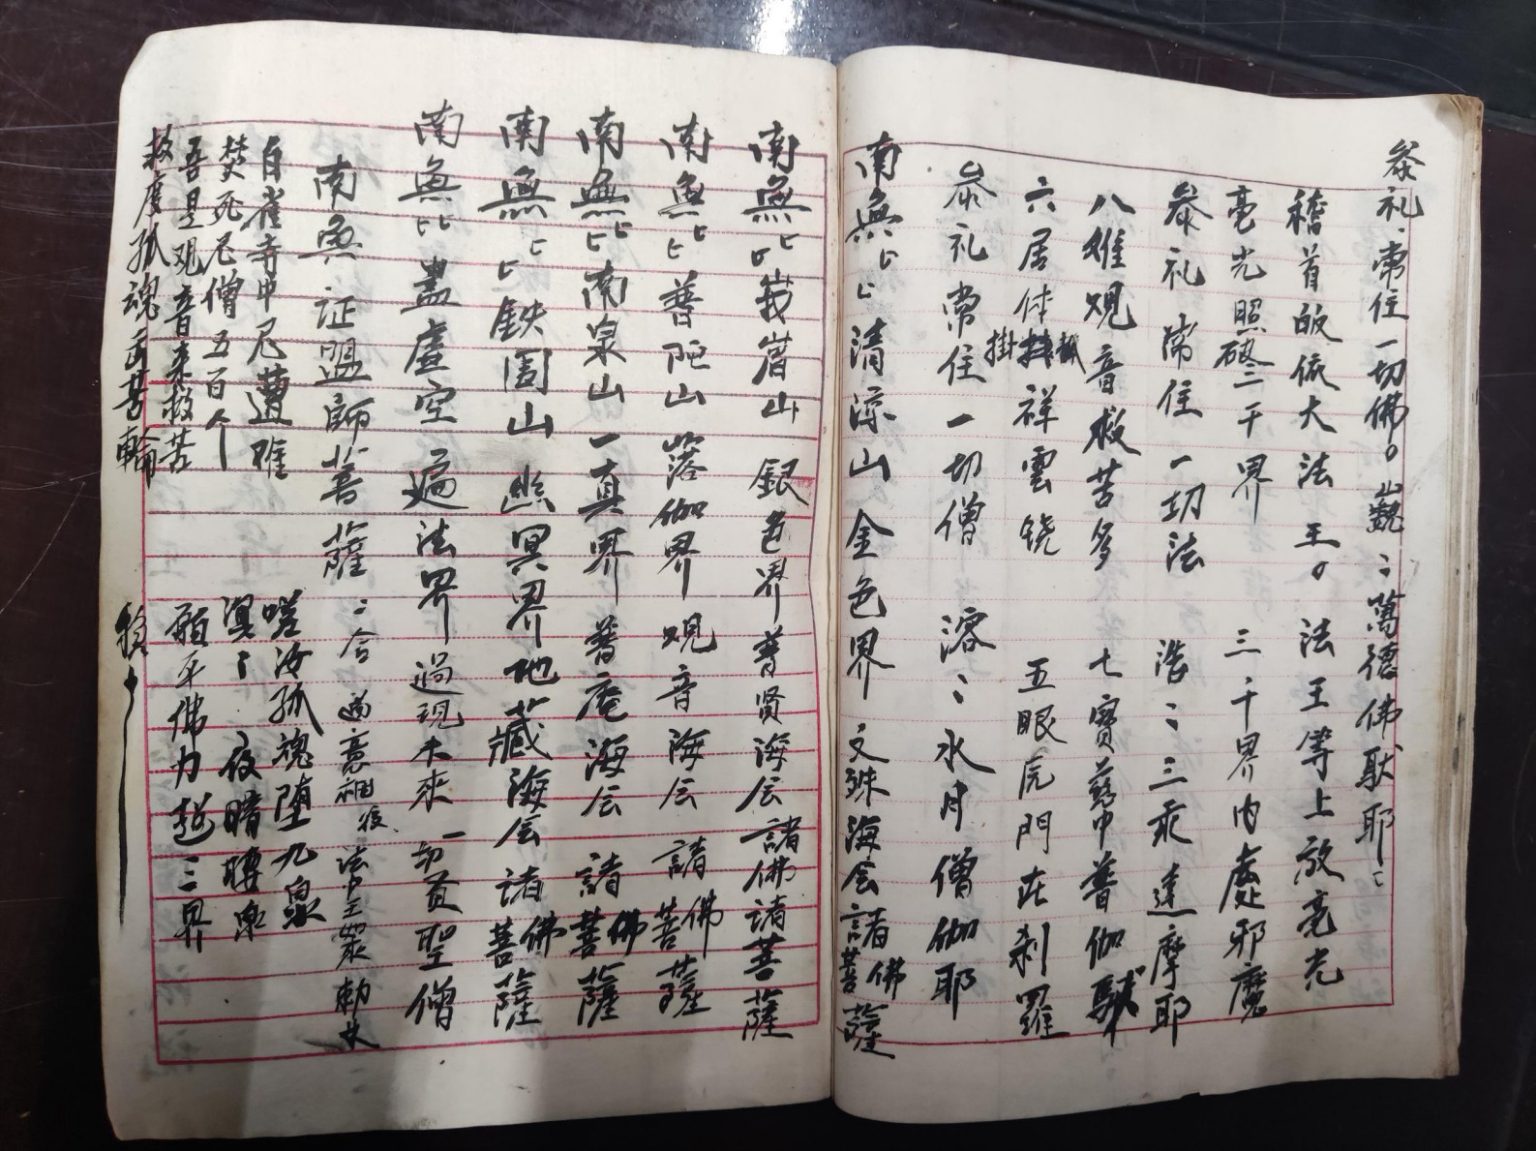 参礼常住一切佛。巍〻萬德佛馱耶〻
稽首皈依大法王。法王等上放亮光
亳光照破三千界 三千界内處邪魔
参礼常住一切法 浩〻三乘達摩耶
八难观音救苦多 七寳慈中普伽馱
六居体掛祥雲繞 五眼虎門在刹羅
参礼常住一切僧 溶〻水月僧伽耶
南無〻〻清凉山金色界 文殊海会諸佛菩薩
南無〻〻峩嵋山 銀色界普贤海会諸佛诸菩薩
南無〻〻普陀山落伽界 观音海会 諸佛菩薩
南無〻〻南泉山一真界 普庵海会 諸佛菩薩
南無〻〻鉄圍山 幽冥界地藏海会诸佛菩薩
南無〻〻盡虚空遍法界 過現未來一切賢聖僧
南無证盟師菩薩〻合
白雀寺中尼遭难 嗟汝孤魂堕九泉
焚死尼僧五百个 溟〻夜暗
吾是观音来救苦 願承佛力超三界
救度孤魂出苦輪